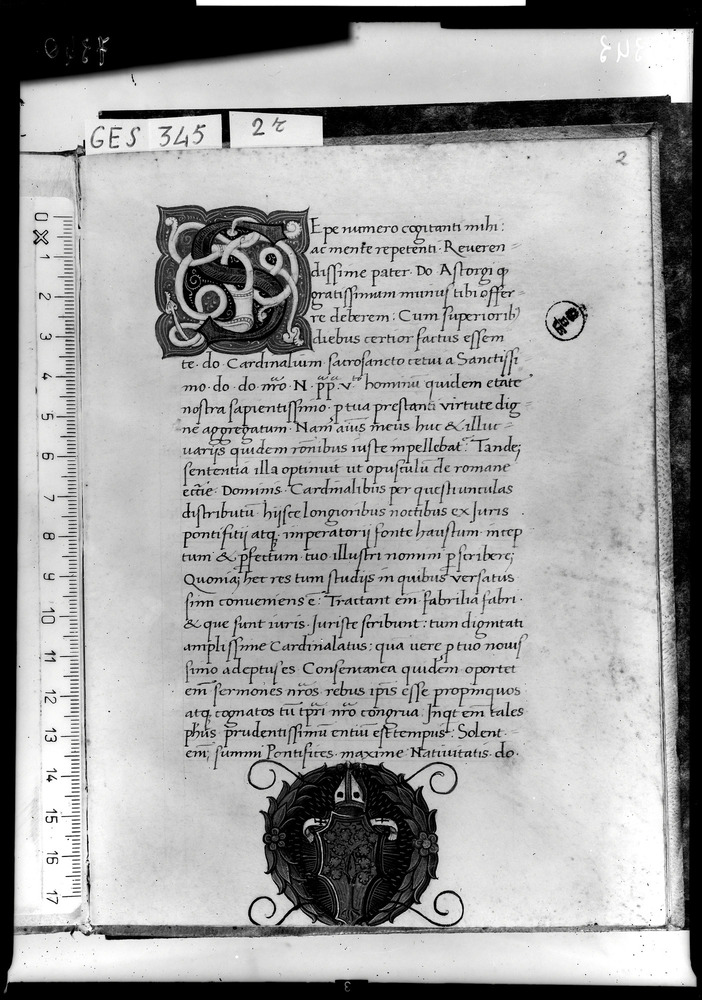 GES 345 2r
2
SEpe numero cogitanti mihi:
ac mente repetenti. Reueren-
dissime pater. Do Astorgi ꝙ
gratissimum munus tibi offer-
re deberem. Cum superiorib3
diebus certior factus essem
te. do. Cardinalium sacrosancto cetui a Sanctissi
mo. do. do. nr̃o. N. pp. v.to hominũ quidem etate
nostra sapientissimo. ꝓ tua prestanti virtute dig-
ne aggregatum. Nam aĩus meus huc & illuc
uarijs quidem rõnibus iuste impellebat. Tande3
sententia illa optinuit ut opusculũ de romane
ecc̃ie. Dominis. Cardinalibus per questiunculas
distributũ. hijsce longioribus noctibus ex Juris
pontifitij atq3 imperatorij fonte haustum. incep
tum & ꝑfectum. tuo illustri nomini
Quonia3 hec res tum studijs in quibus versatus
sim conueniens ẽ. Tractant em̃ fabrilia fabri.
& que sunt iuris. Juriste scribunt: tum dignitati
amplissime Cardinalatus: qua uere ꝓ tuo nouis
simo adeptus es. Consentanea quidem oportet
em̃ sermones nr̃os. rebus ip̃is esse propinquos
atq3 cognatos tũ tp̃ri nr̃o congrua. Jnqt em̃ tales
ph̃us prudentissimũ entiũ est tempus. Solent
em̃ summi Pontifices. maxime Natiuitatis. do.
0 1 2 3 4 5 6 7 8 9 10 11 12 13 14 15 16 17
3